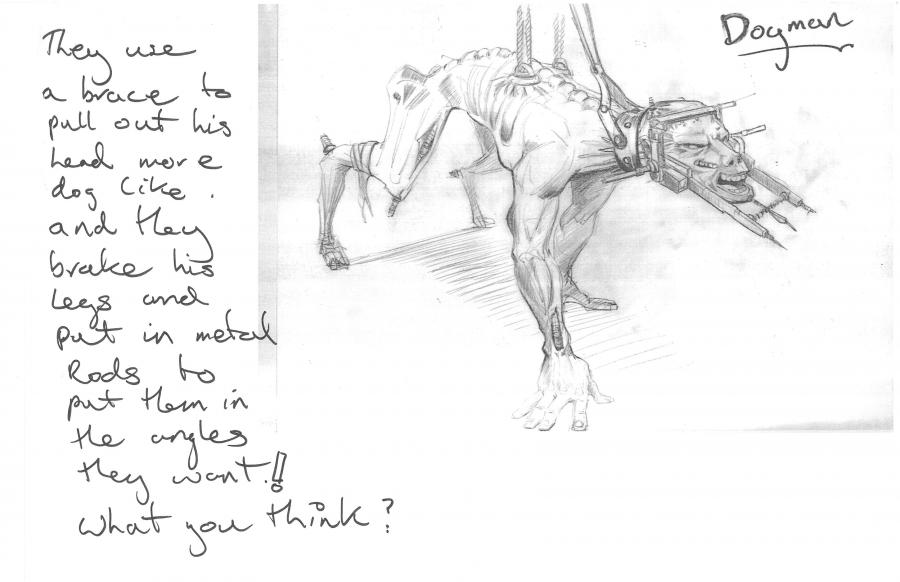 They use
a brace to
pull out his
head more
dog like.
and they
brake his
legs and
put in metal
Rods to
put them in
the angles
they want!!
What you think?
Dogman